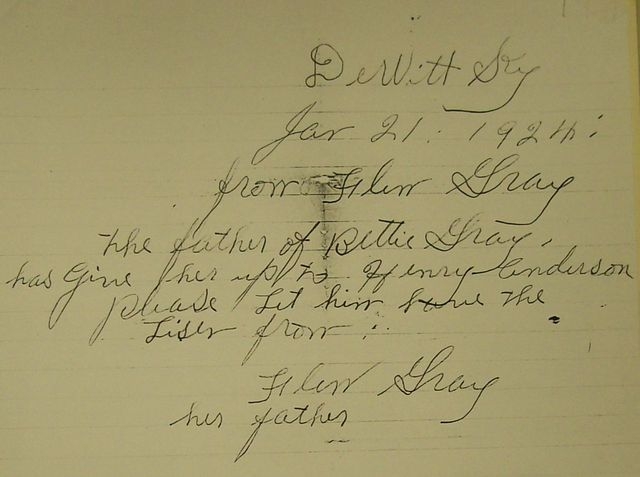 DeWitt Ky
Jan 21. 1924.
from Flem Gray
the father of Bettie Gray.
has Give her up to Henry Anderson
please Let him have the
Lisen from.
Flem Gray
her father